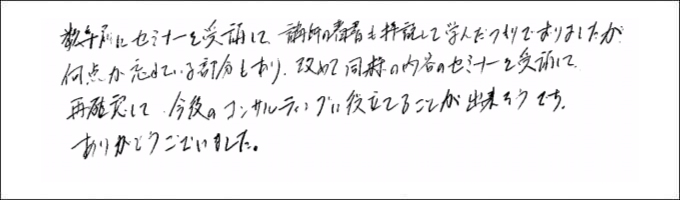 数年前にセミナーを受講して、講師の著書も拝読して学んだつもりでおりましたが
何点か忘れている部分もあり、改めて同様の内容のセミナーを受講して
再確認して、今後のコンサルティングに役立てることが出来そうです。
ありがとうございました。